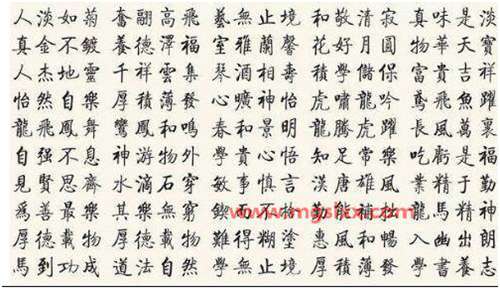 人淡如菊 奮翮高飛 藝無止境 和敬清寂 真味是淡
真金不鍍 養德澤福 室雅蘭馨 花好月圓 物華天寶
人杰地靈 千祥雲集 琴酒相壽 學儲保 富貴吉祥
怡然自樂 厚積薄發 心曠神怡 虎嘯龍吟 鳶飛魚躍
龍飛鳳舞 鸞鳳和鳴 春和景明 龍騰虎躍 長風萬裏
自强不息 神游物外 學貴心悟 知足常樂 吃虧是福
見賢思齊 水滴石穿 敏事慎言 漢唐雄風 業精于勤
爲善最樂 其樂無窮 鍥而不捨 勤能補拙 龍馬精神
厚德載物 難得糊塗 惠風和暢 入幽出朗
馬到功成 道法自然 學無止境 厚積薄發 學書養志